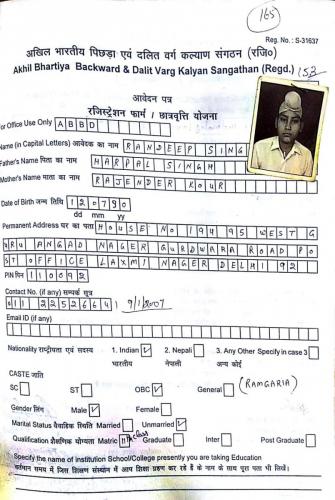 165
Reg. No. : S-31637
अखिल भारतीय पिछड़ा एवं दलित वर्ग कल्याण संगठन (रजि०)
Akhil Bhartiya Backward & Dalit Varg Kalyan Sangathan (Regd.)
152
आवेदन पत्र
रजिस्ट्रेशन फार्म / छात्रवृत्ति योजना
For Office Use Only ABBD
Name (in Capital Letters) आवेदक का नाम RANDEEP SING
Father's Name पिता का नाम HARPAL SINGH
Mother's Name माता का नाम RAJENDER KOUR
Date of Birth जन्म तिथि 120790
dd mm yy
Permanent Address घर का पता HOUSE NO 194 95 WEST G
URU ANGAD NAGER GURDWARA ROAD PO
ST OFFICE LAXMI NAGER DELHI 92
PIN पिन 110092
Contact No. (if any) सम्पर्क सूत्र
011 22526641 9/1/2007
Email ID (if any)
Nationality राष्ट्रीयता एवं सदस्य 1. Indian ✓ 2. Nepali 3. Any Other Specify in case 3
भारतीय नेपाली अन्य कोई
CASTE जाति
SC ST OBC ✓ General (RAMGARIA)
Gender लिंग Male ✓ Female
Marital Status वैवाहिक स्थिति Married Unmarried ✓
Qualification शैक्षणिक योग्यता Matric Graduate Inter Post Graduate
Specify the name of institution School/College presently you are taking Education
वर्तमान समय में जिस शिक्षण संस्थान में आप शिक्षा ग्रहण कर रहे हैं के नाम के साथ पूरा पता भी लिखें।